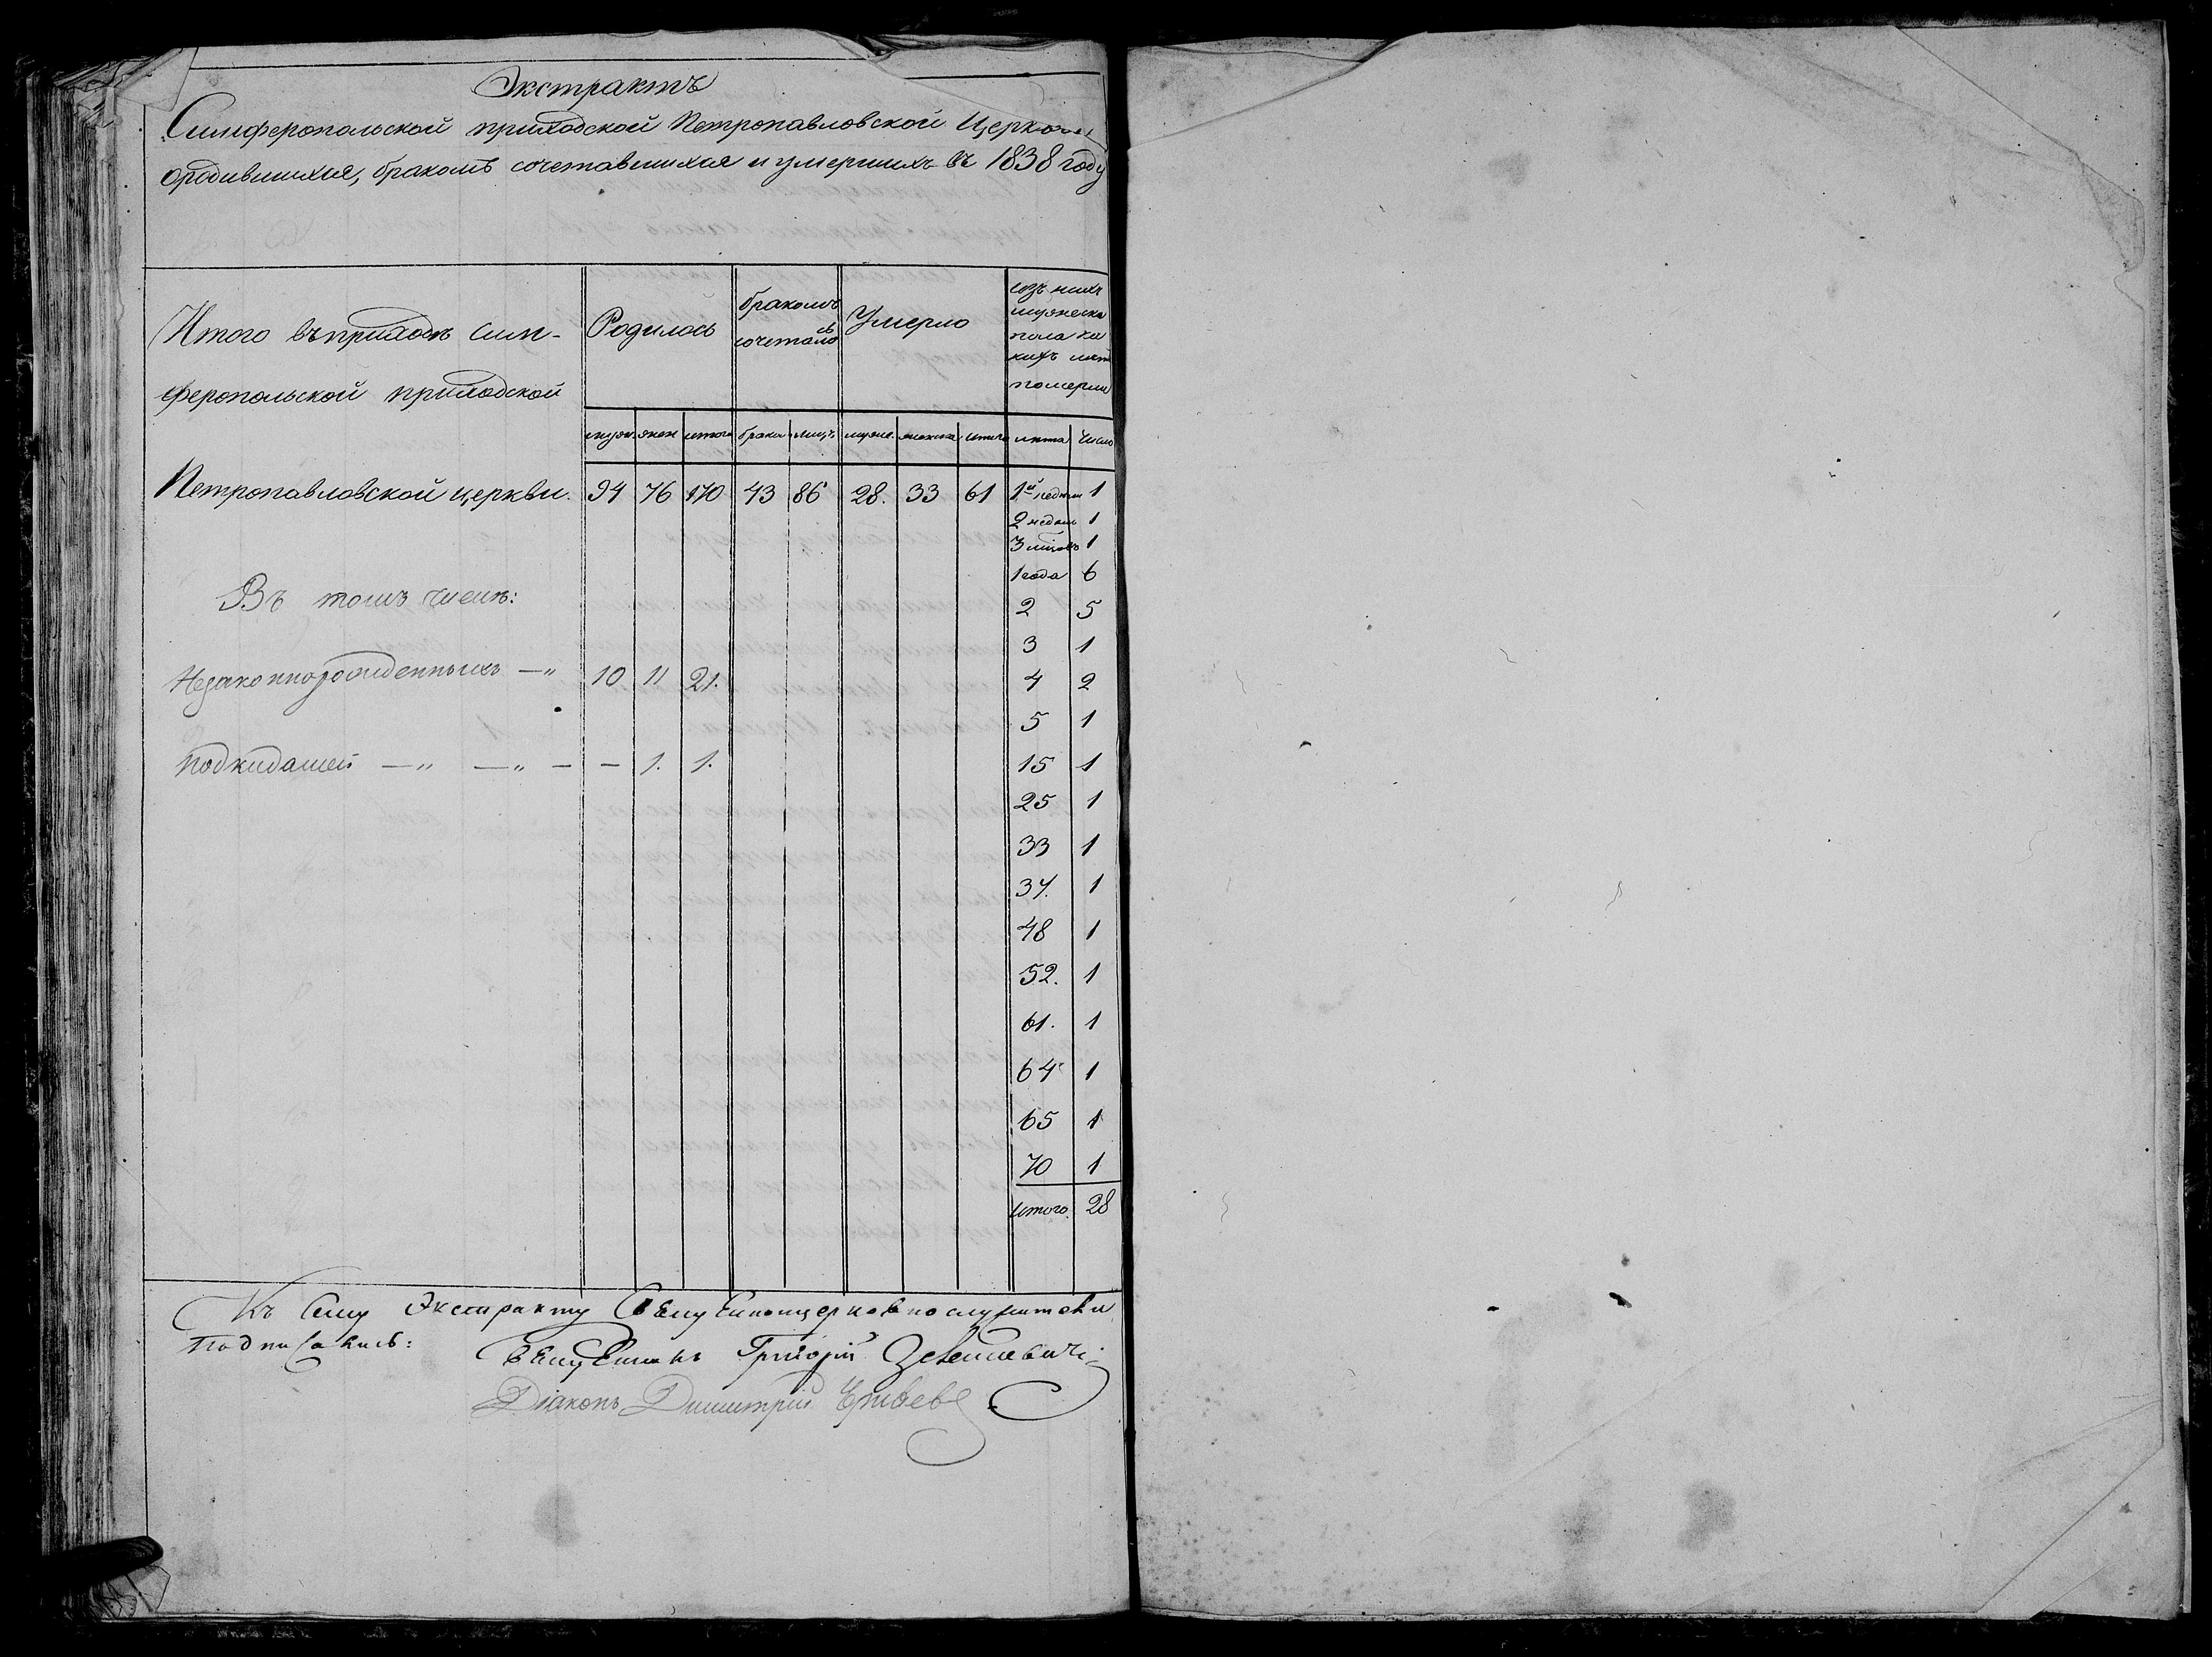 Экстрактъ
Симферопольской приходской Петропавловской Церкви
ородившихся, бракомъ сочетавшихся и умершихъ въ 1838 году
Итого въ приходѣ Сим-
феропольской приходской
Петропавловской церкви.
Родилось
бракомъ сочеталось
Умерло
изъ нихъ
мужеска
пола ка
кихъ лѣтъ
померли
муж. жен итого браки лицъ муже. женска итого лѣта число
94 76 170 43 86 28. 33 61 1й недѣли 1
2 недѣль 1
3 1
1 года 6
Въ томъ числѣ:
2 5
3 1
Незаконнорожденныхъ —„ 10 11 21. 4 2
5 1
Подкидышей —„ —„ — — 1. 1. 15 1
25 1
33 1
37. 1
48 1
52. 1
61. 1
64 1
65 1
70 1
итого. 28
Къ Сему Экстракту Священноцерковнослужители
подписались:
Священникъ Григорій
Діаконъ Димитрій